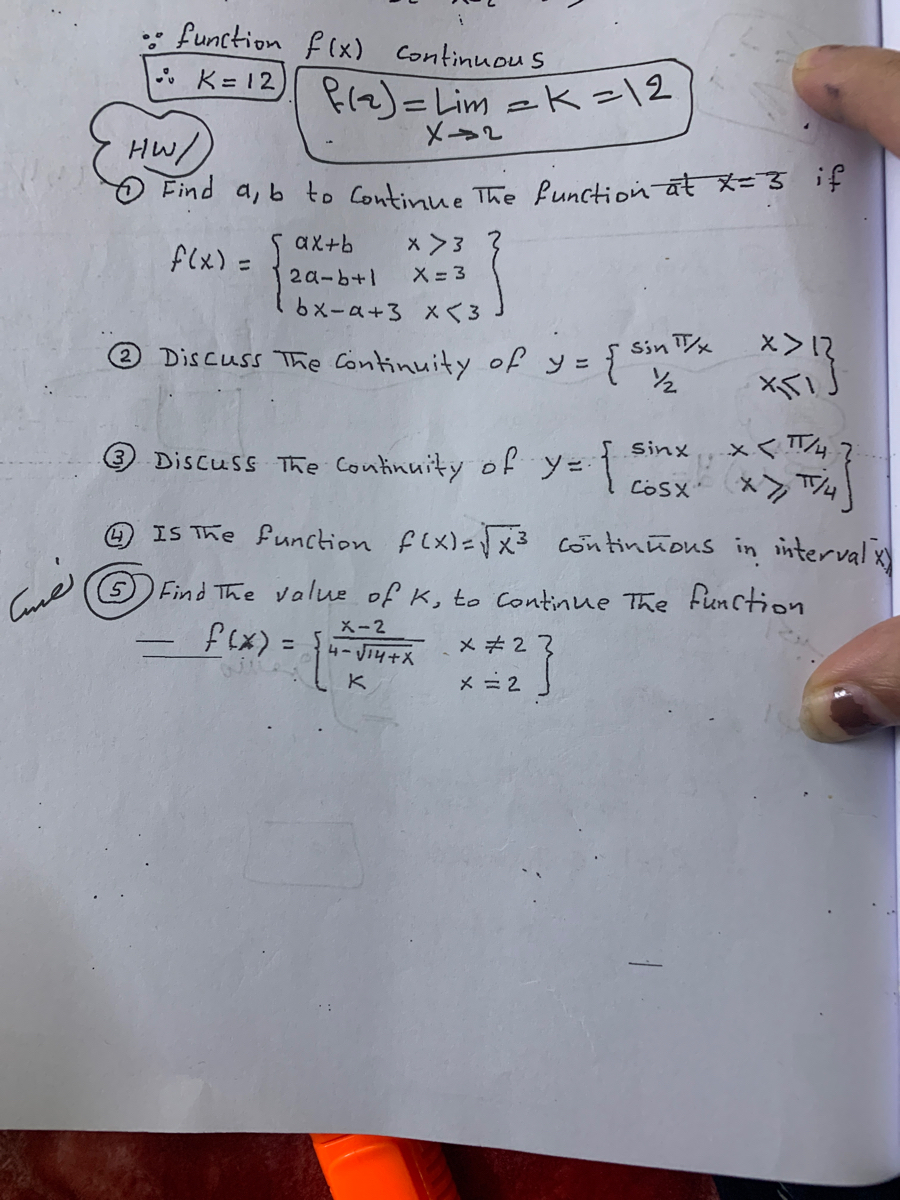 ∵ function f(x) continuous
∴ K=12
f(2) = Lim = K = 12
x→2
HW/
① Find a, b to Continue The function at x=3 if
f(x) = { ax+b x>3
2a-b+1 x=3
bx-a+3 x<3 }
② Discuss The Continuity of y = { sin π/x x>1
1/2 x≤1 }
③ Discuss The Continuity of y = { sinx x<π/4
cosx x≥π/4 }
④ Is The function f(x)=√x³ continuous in interval
⑤ Find The value of K, to continue The function
f(x) = { x-2 / 4-√14+x x≠2
K x=2 }